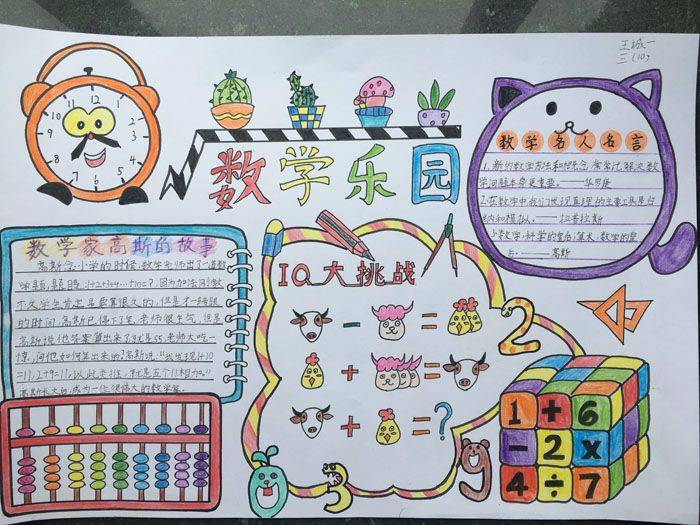 王城一
三(10)
数学乐园
数学名人名言
1.新的数学方法和概念,常常比解决数
学问题本身更重要。——华罗庚
2.在数学中,我们发现真理的主要工具是归
纳和模拟。——拉普拉斯
3.数学,科学的皇后;算术,数学的皇
后。——高斯
数学家高斯的故事
高斯念小学的时候,数学老师出了一道数
学题,题目
的时间,高斯已停下了笔,老师很生气,但是
高斯说他答案算出来了,对是55,老师大吃一
惊,问他如何算出来的?高斯说:"我发现1+10
=11,2+9=11,以此类推,就是五个11相加。"
高斯长大后,成为一位很伟大的数学家。
IQ大挑战
- =
+ =
+ =?
12 1 2 3 4 5 6 7 8 9 10 11
2
0
3
9
1 + 6
- 2 x
4 ÷ 7